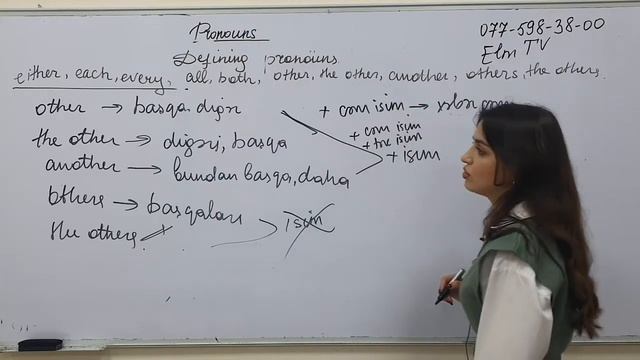 Pronouns
077-598-38-00
Elm TV
Defining pronouns
either, each, every, all, both, other, the other, another, others, the others.
other → başqa digər + cəm isim →
the other → digəri, başqa + cəm isim
+ tək isim
another → bundan başqa, daha + isim
others → başqaları isim
the others